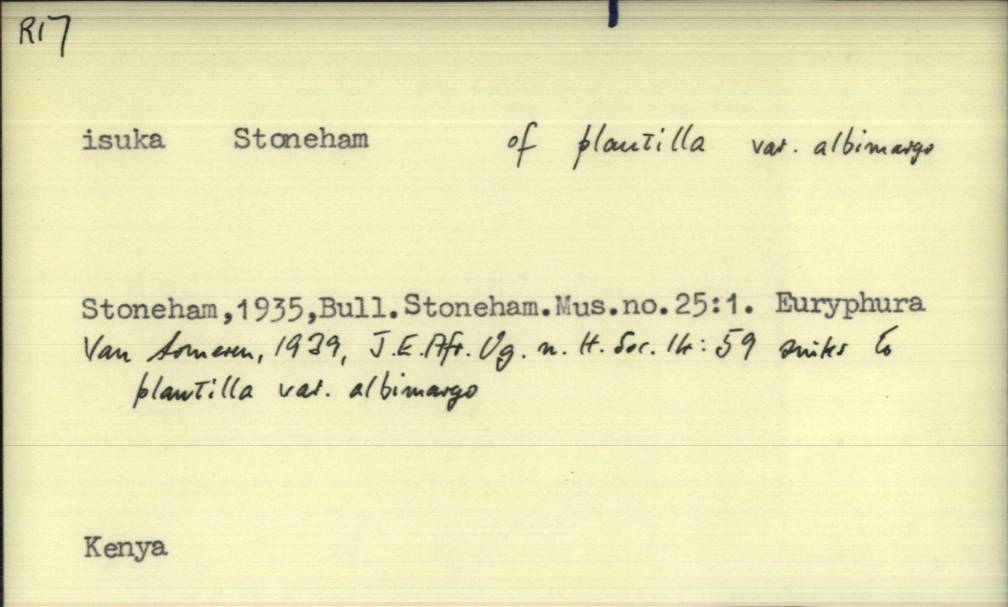 R17
isuka Stoneham of plautilla var. albimargo
Stoneham,1935,Bull.Stoneham.Mus.no.25:1. Euryphura
Van Someren, 1939, J.E.Afr. Ug. n. H. Soc. 14: 59 sinks to
plautilla var. albimargo
Kenya